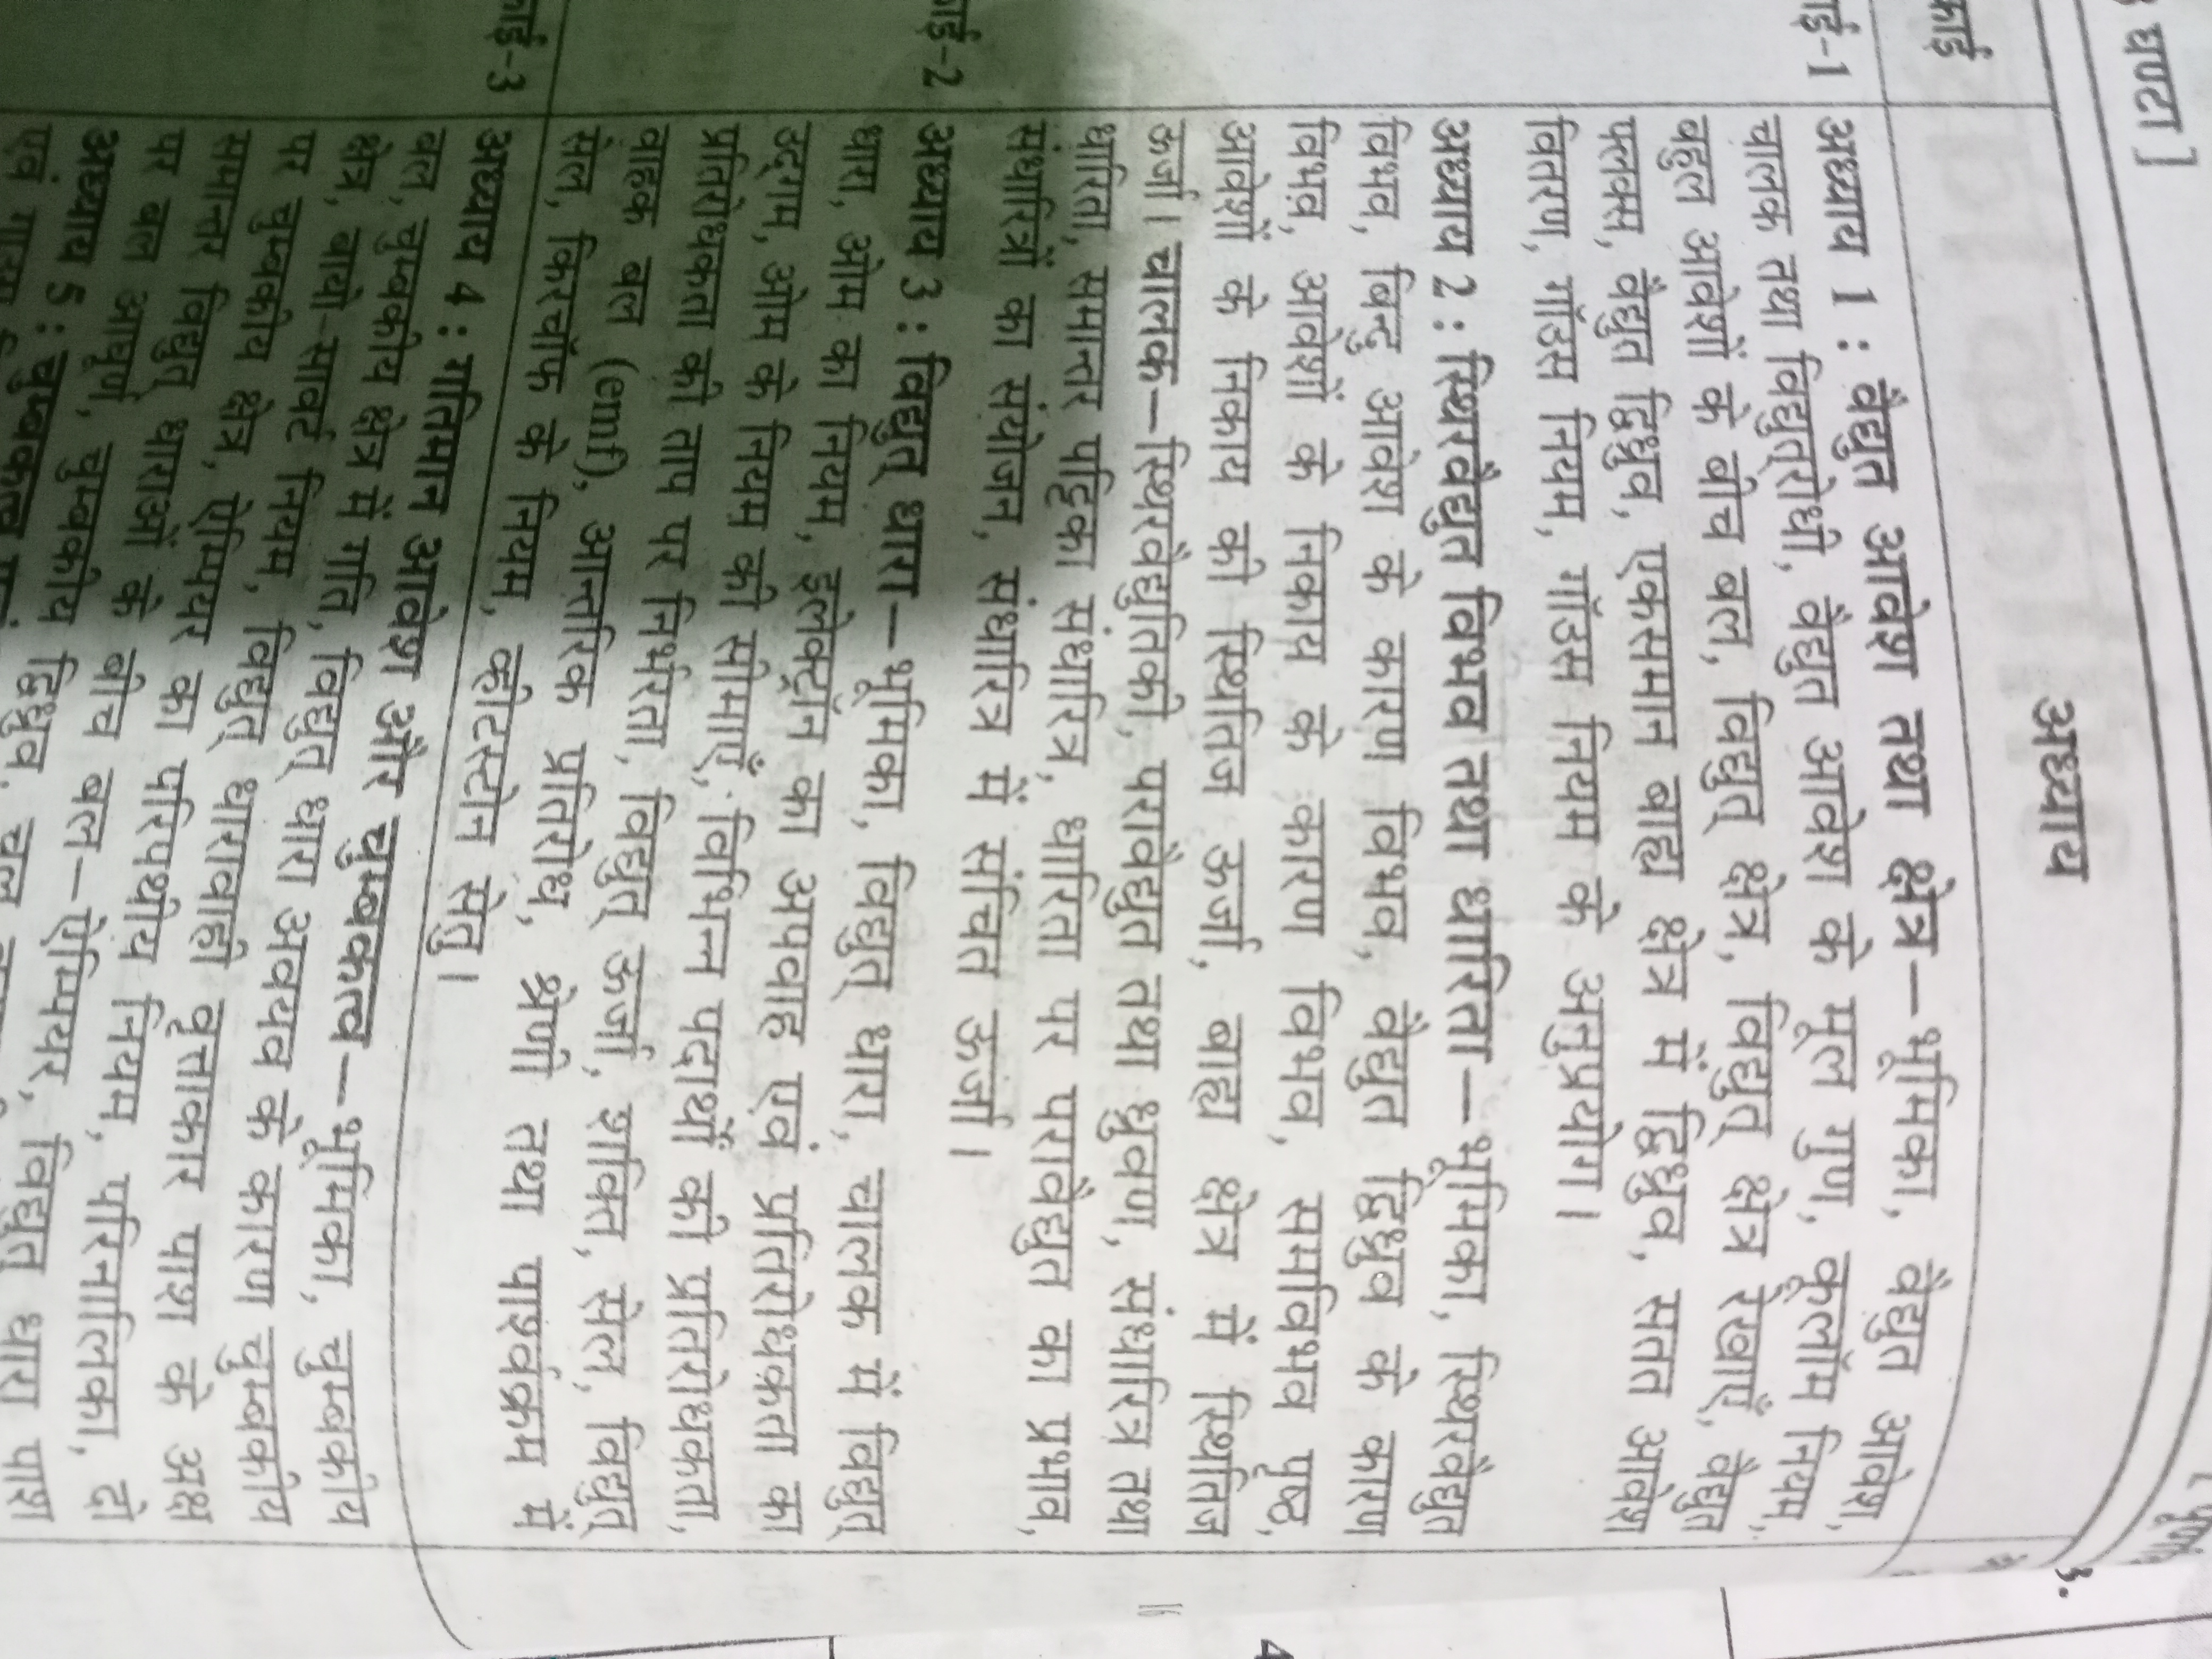 घण्टा ]
अध्याय
अध्याय 1 : वैद्युत आवेश तथा क्षेत्र—भूमिका, वैद्युत आवेश,
चालक तथा विद्युत्रोधी, वैद्युत आवेश के मूल गुण, कूलॉम नियम,
बहुल आवेशों के बीच बल, विद्युत् क्षेत्र, विद्युत् क्षेत्र रेखाएँ, वैद्युत
फ्लक्स, वैद्युत द्विध्रुव, एकसमान बाह्य क्षेत्र में द्विध्रुव, सतत आवेश
वितरण, गॉउस नियम, गॉउस नियम के अनुप्रयोग।
अध्याय 2 : स्थिरवैद्युत विभव तथा धारिता—भूमिका, स्थिरवैद्युत
विभव, बिन्दु आवेश के कारण विभव, वैद्युत द्विध्रुव के कारण
विभव, आवेशों के निकाय के कारण विभव, समविभव पृष्ठ,
आवेशों के निकाय की स्थितिज ऊर्जा, बाह्य क्षेत्र में स्थितिज
ऊर्जा। चालक—स्थिरवैद्युतिकी, परावैद्युत तथा ध्रुवण, संधारित्र तथा
धारिता, समान्तर पट्टिका संधारित्र, धारिता पर परावैद्युत का प्रभाव,
संधारित्रों का संयोजन, संधारित्र में संचित ऊर्जा।
अध्याय 3 : विद्युत् धारा—भूमिका, विद्युत् धारा, चालक में विद्युत्
धारा, ओम का नियम, इलेक्ट्रॉन का अपवाह एवं प्रतिरोधकता का
उद्गम, ओम के नियम की सीमाएँ, विभिन्न पदार्थों की प्रतिरोधकता,
प्रतिरोधकता की ताप पर निर्भरता, विद्युत् ऊर्जा, शक्ति, सेल, विद्युत्
वाहक बल (emf), आन्तरिक प्रतिरोध, श्रेणी तथा पार्श्वक्रम में
सेल, किरचॉफ के नियम, व्हीटस्टोन सेतु।
अध्याय 4 : गतिमान आवेश और चुम्बकत्व—भूमिका, चुम्बकीय
बल, चुम्बकीय क्षेत्र में गति, विद्युत् धारा अवयव के कारण चुम्बकीय
क्षेत्र, बायो-सावर्ट नियम, विद्युत् धारावाही वृत्ताकार पाश के अक्ष
पर चुम्बकीय क्षेत्र, ऐम्पियर का परिपथीय नियम, परिनालिका, दो
समान्तर विद्युत् धाराओं के बीच बल—ऐम्पियर, विद्युत् धारा पाश
पर बल आघूर्ण, चुम्बकीय द्विध्रुव, चल
अध्याय 5 : चुम्बकत्व
एवं
4